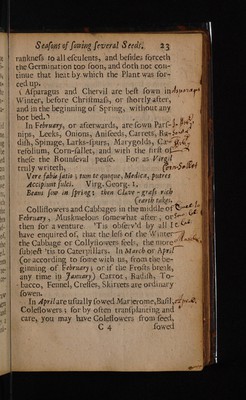 Seasons of sowing several Seeds. 23
rankness to all esculents, and besides forceth
the Germination too soon, and doth not con-
tinue that heat by which the Plant was for-
ced up.
Asparagus and Chervil are best sown in
Winter, before Christmass, or shortly after,
and in the beginning of Spring, without any
hot bed.
In February, or afterwards, are sown Pars-
nips, Leeks, Onions, Aniseeds, Carrets, Ra-
dish, Spinage, Larks-spurs, Marygolds, Ca-
refolium, Corn-sallet, and with the first of
these the Rounseval pease. For as Virgil
truly writeth,
Vere fabis satio; tum te quoque, Medica, putres
Accipiunt sulci. Virg. Georg. 1.
Beans sow in spring; then Clave-grass rich
(earth takes.
Colliflowers and Cabbages in the middle of
February, Muskmelons somewhat after, or
then for a venture. 'Tis observ'd by all I
have enquired of, that the less of the Winter
the Cabbage or Collyflowers feels, the more
subject 'tis to Caterpillars. In March or April
(or according to some with us, from the be-
ginning of February; or if the Frosts break,
any time in January) Carrot, Radish, To-
bacco, Fennel, Cresses, Skirrets are ordinary
sowen.
In April are usually sowed Marjerome, Basil,
Coleflowers; for by often transplanting and
care, you may have Coleflowers from seed,
C 4 sowed